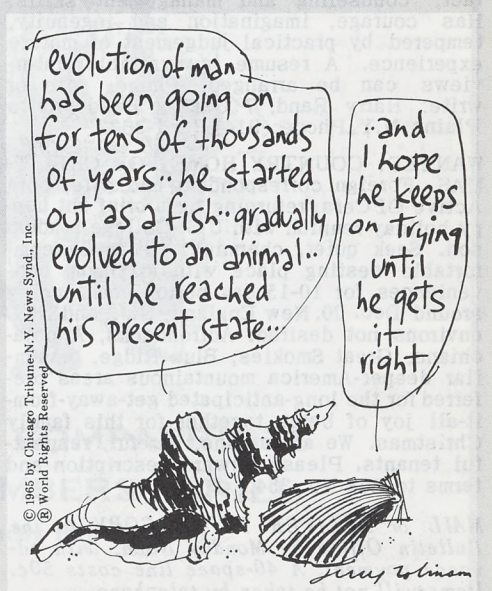 evolution of man
has been going on
for tens of thousands
of years.. he started
out as a fish.. gradually
evolved to an animal..
until he reached
his present state...
..and
I hope
he keeps
on trying
until
he gets
it
right
© 1965 by Chicago Tribune-N.Y. News Synd., Inc.
® World Rights Reserved
Jerry Robinson